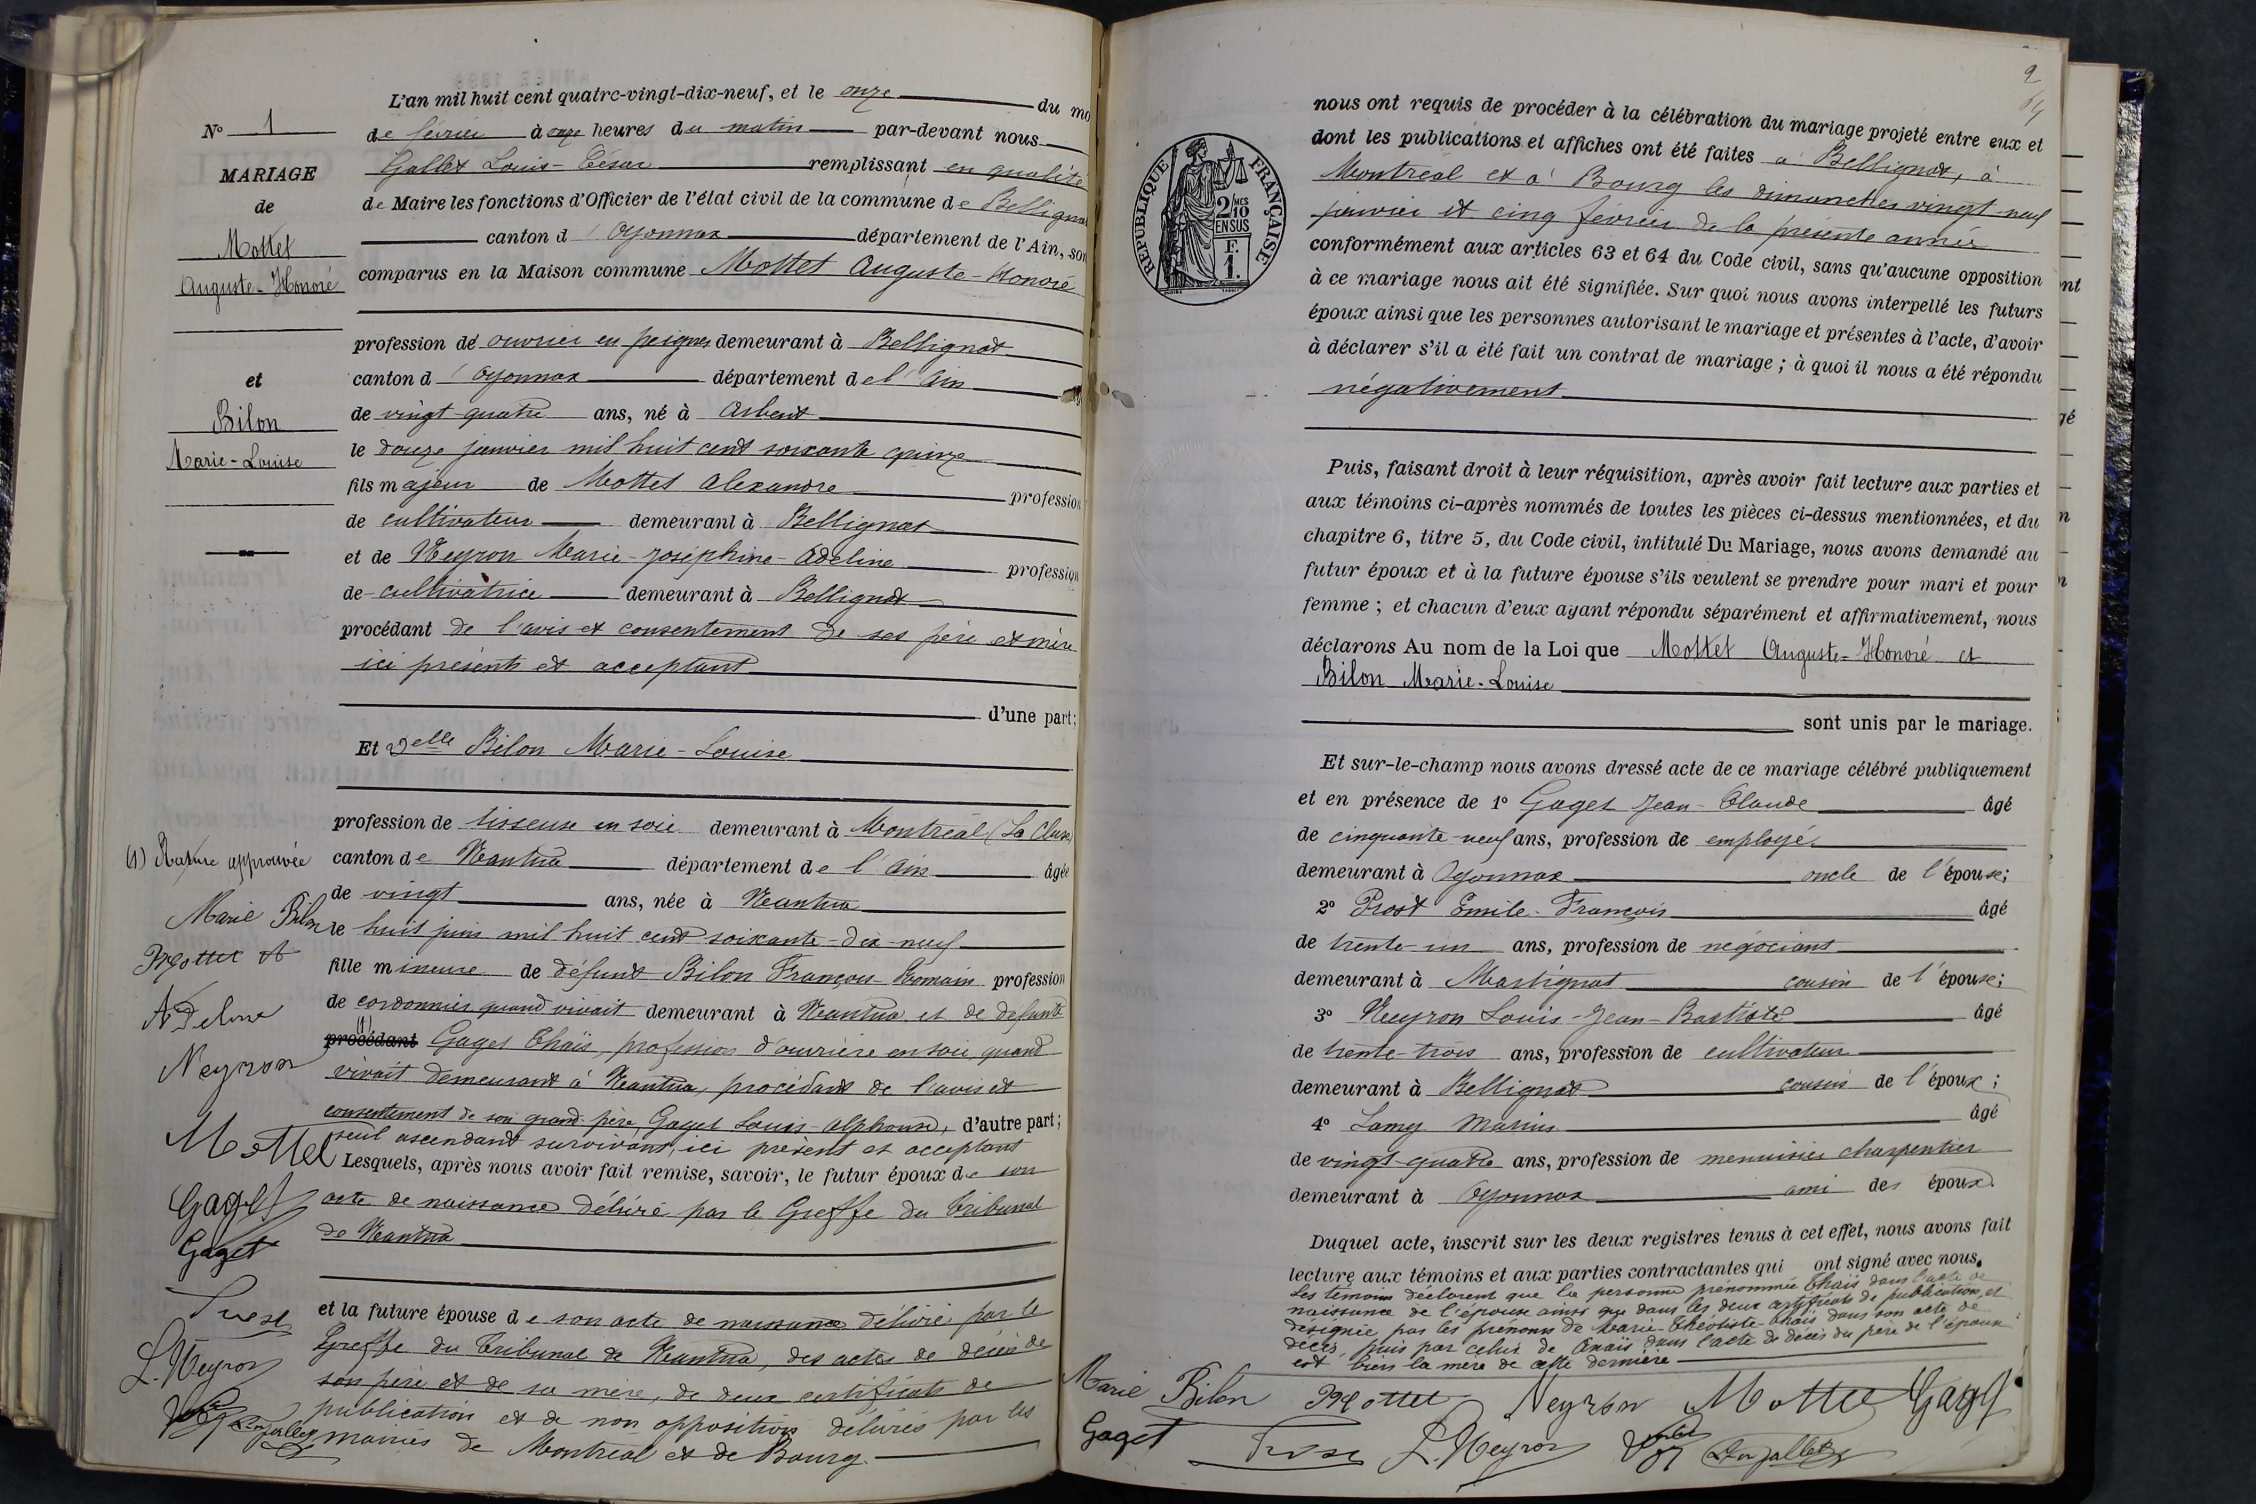 L'an mil huit cent quatre-vingt-dix-neuf, et le onze du mo
No 1
MARIAGE
de
Mottet
Auguste-Honoré
et
Bilon
Marie-Louise
de février à onze heures du matin par-devant nous
Gallet Louis-César remplissant en qualité
de Maire les fonctions d'Officier de l'état civil de la commune de Bellignat
canton d'Oyonnax département de l'Ain, son
comparus en la Maison commune Mottet Auguste-Honoré
profession de ouvrier en peignes demeurant à Bellignat
canton d'Oyonnax département de l'Ain
de vingt quatre ans, né à Arbent
le douze janvier mil huit cent soixante quinze
fils majeur de Mottet Alexandre profession
de cultivateur demeurant à Bellignat
et de Neyron Marie-Joséphine-Adeline profession
de cultivatrice demeurant à Bellignat
procédant de l'avis et consentement de ses père et mère
ici présents et acceptant
d'une part;
Et Delle Bilon Marie-Louise
profession de tisseuse en soie demeurant à Montréal (La Cluse)
canton de Nantua département de l'Ain âgée
de vingt ans, née à Nantua
le huit juin mil huit cent soixante-dix-neuf
fille mineure de défunt Bilon François Romain profession
de cordonnier quand vivait demeurant à Nantua et de défunte
(1)
procédant Gaget Thaïs, profession d'ouvrière en soie, quand
vivait demeurant à Nantua, procédant de l'avis et
consentement de son grand-père Gaget Louis-Alphonse, d'autre part;
seul ascendant survivant, ici présent et acceptant
Lesquels, après nous avoir fait remise, savoir, le futur époux de son
acte de naissance délivré par le Greffe du Tribunal
de Nantua
et la future épouse de son acte de naissance délivré par le
Greffe du Tribunal de Nantua, des actes de décès de
son père et de sa mère, de deux certificats de
publication et de non opposition délivrés par les
mairies de Montréal et de Bourg.
(1) Rature approuvée
Marie Bilon
Mottet A
Adeline
Neyron
Mottet
Gaget
Gaget
Prost
L. Neyron
2
64
RÉPUBLIQUE FRANÇAISE
2/10 MES
EN SUS
F.
1.
nous ont requis de procéder à la célébration du mariage projeté entre eux et
dont les publications et affiches ont été faites à Bellignat, à
Montréal et à Bourg les dimanches vingt-neuf
janvier et cinq février de la présente année
conformément aux articles 63 et 64 du Code civil, sans qu'aucune opposition
à ce mariage nous ait été signifiée. Sur quoi nous avons interpellé les futurs
époux ainsi que les personnes autorisant le mariage et présentes à l'acte, d'avoir
à déclarer s'il a été fait un contrat de mariage; à quoi il nous a été répondu
négativement
Puis, faisant droit à leur réquisition, après avoir fait lecture aux parties et
aux témoins ci-après nommés de toutes les pièces ci-dessus mentionnées, et du
chapitre 6, titre 5, du Code civil, intitulé Du Mariage, nous avons demandé au
futur époux et à la future épouse s'ils veulent se prendre pour mari et pour
femme; et chacun d'eux ayant répondu séparément et affirmativement, nous
déclarons Au nom de la Loi que Mottet Auguste-Honoré et
Bilon Marie-Louise
sont unis par le mariage.
Et sur-le-champ nous avons dressé acte de ce mariage célébré publiquement
et en présence de 1o Gaget Jean-Claude âgé
de cinquante-neuf ans, profession de employé
demeurant à Oyonnax oncle de l'épouse;
2o Prost Emile-François âgé
de trente-un ans, profession de négociant
demeurant à Martignat cousin de l'épouse;
3o Neyron Louis-Jean-Baptiste âgé
de trente-trois ans, profession de cultivateur
demeurant à Bellignat cousin de l'époux;
4o Lamy Marius âgé
de vingt-quatre ans, profession de menuisier charpentier
demeurant à Oyonnax ami des époux.
Duquel acte, inscrit sur les deux registres tenus à cet effet, nous avons fait
lecture aux témoins et aux parties contractantes qui ont signé avec nous.
Les témoins déclarent que la personne prénommée Thaïs dans l'acte de
naissance de l'épouse ainsi que dans les deux certificats de publication, et
désignée par les prénoms de Marie-Théotiste-Thaïs dans son acte de
décès, puis par celui de Anaïs dans l'acte de décès du père de l'épouse
est bien la mère de cette dernière
Marie Bilon Mottet Neyron Mottet Gaget
Gaget Prost L. Neyron